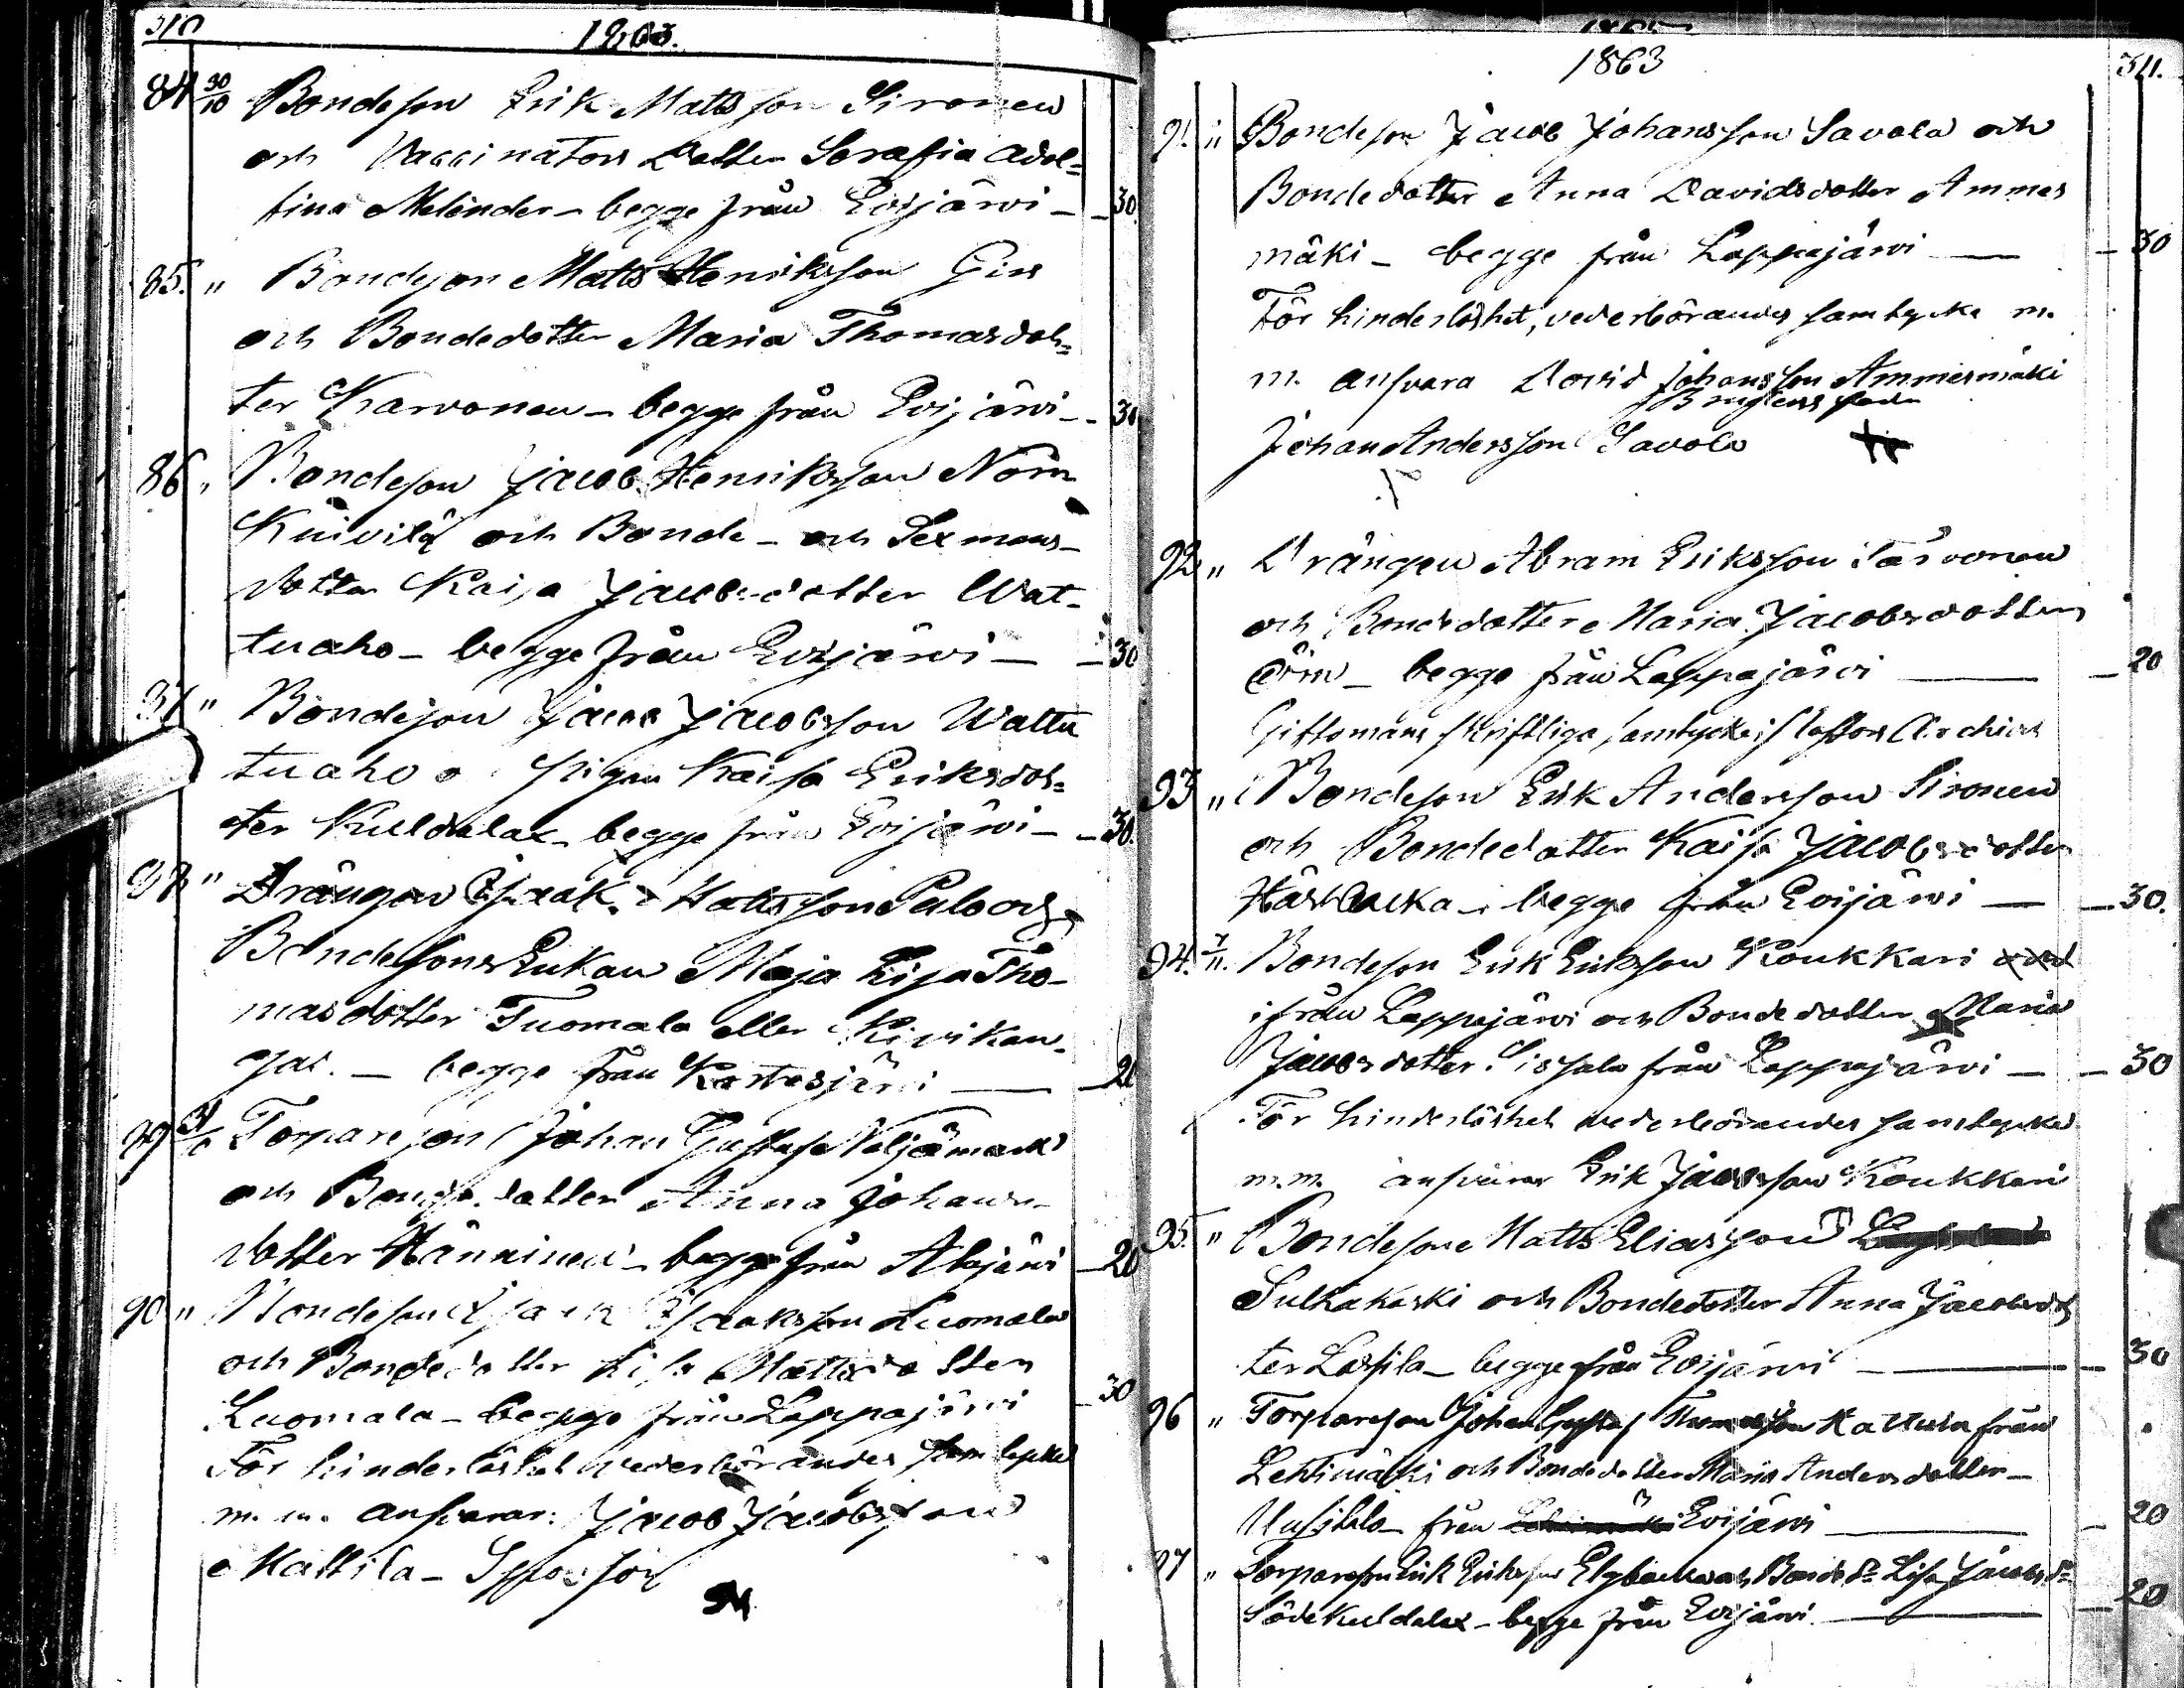 310
1863.
84 30/10 Bondeson Erik Mattsson Sironen
och Vaccinators Dotter Serafia Adol=
fina Melender - begge från Evijärvi - - 30.
85. " Bondeson Matts Henriksson Giss
och Bondedotter Maria Thomasdot=
ter Karvonen - begge från Evijärvi - - 30
86 " Bondeson Jacob Henriksson Norr
Kuivila och Bonde - och Sexmans-
dotter Kaisa Jacobsdotter Wat-
tuaho - begge från Evijärvi - - 30
87 " Bondeson Jacob Jacobsson Wattu
tuaho o Pigan Kaisa Eriksdot=
ter Kuldalax - begge från Evijärvi - - 30.
" Drängen Isaak Mattsson Palo och
Bondesons Enkan Maja Lisa Tho-
masdotter Tuomala eller Kivikan-
gas. - begge från Kortesjärvi - 20
Torpareson Johan Gustaf Viljamaa
och Bondedotter Anna Johans-
dotter Hänninen - begge från Alajärvi - 20
90 " Bondeson Isaak Isaaksson Luomala
och Bondedotter Lisa Mattsdotter
Luomala - begge från Lappajärvi - 30
För hinderlöshet vederbörandes samtycke
m. m. ansvarar: Jacob Jacobsson
Mattila - Sponsor
1863
311.
91. " Bondeson Jacob Johansson Savola och
Bondedotter Anna Davidsdotter Ammes
mäki - begge från Lappajärvi - 30
För hinderlöshet, vederbörandes samtycke m.
m. ansvara David Johansson Ammesmäki
Brudens fader
Johan Andersson Savola
92 " Drängen Abram Eriksson Tarvonen
och Bondedotter Maria Jacobsdotter
Örn - begge från Lappajärvi - 20
Giftomans skriftliga samtycke i Archivet
93 " Bondeson Erik Andersson Sironen
och Bondedotter Kaisa Jacobsdotter
Härbacka - begge från Evijärvi - 30.
94. 7/11. Bondeson Erik Eriksson Koukkari
ifrån Lappajärvi och Bondedotter Maria
Jacobsdotter från Lappajärvi - - 30
För hinderlöshet vederbörandes samtycke
m.m. ansvarar Erik Jacobsson Koukkari
95. " Bondeson Matts Eliasson
Sulkakoski och Bondedotter Anna Jacobsdot
ter Lassila - begge från Evijärvi - 30
96 " Torpareson Johan Gustaf Thomasson Kattula från
Lehtimäki och Bondedotter Maria Andersdotter -
Uusitalo från Evijärvi - 20
97 " Torpareson Erik Eriksson Elgbacka och Bonde Dr Lisa Jacobs Dr
Söderkuldalax - begge från Evijärvi - 20